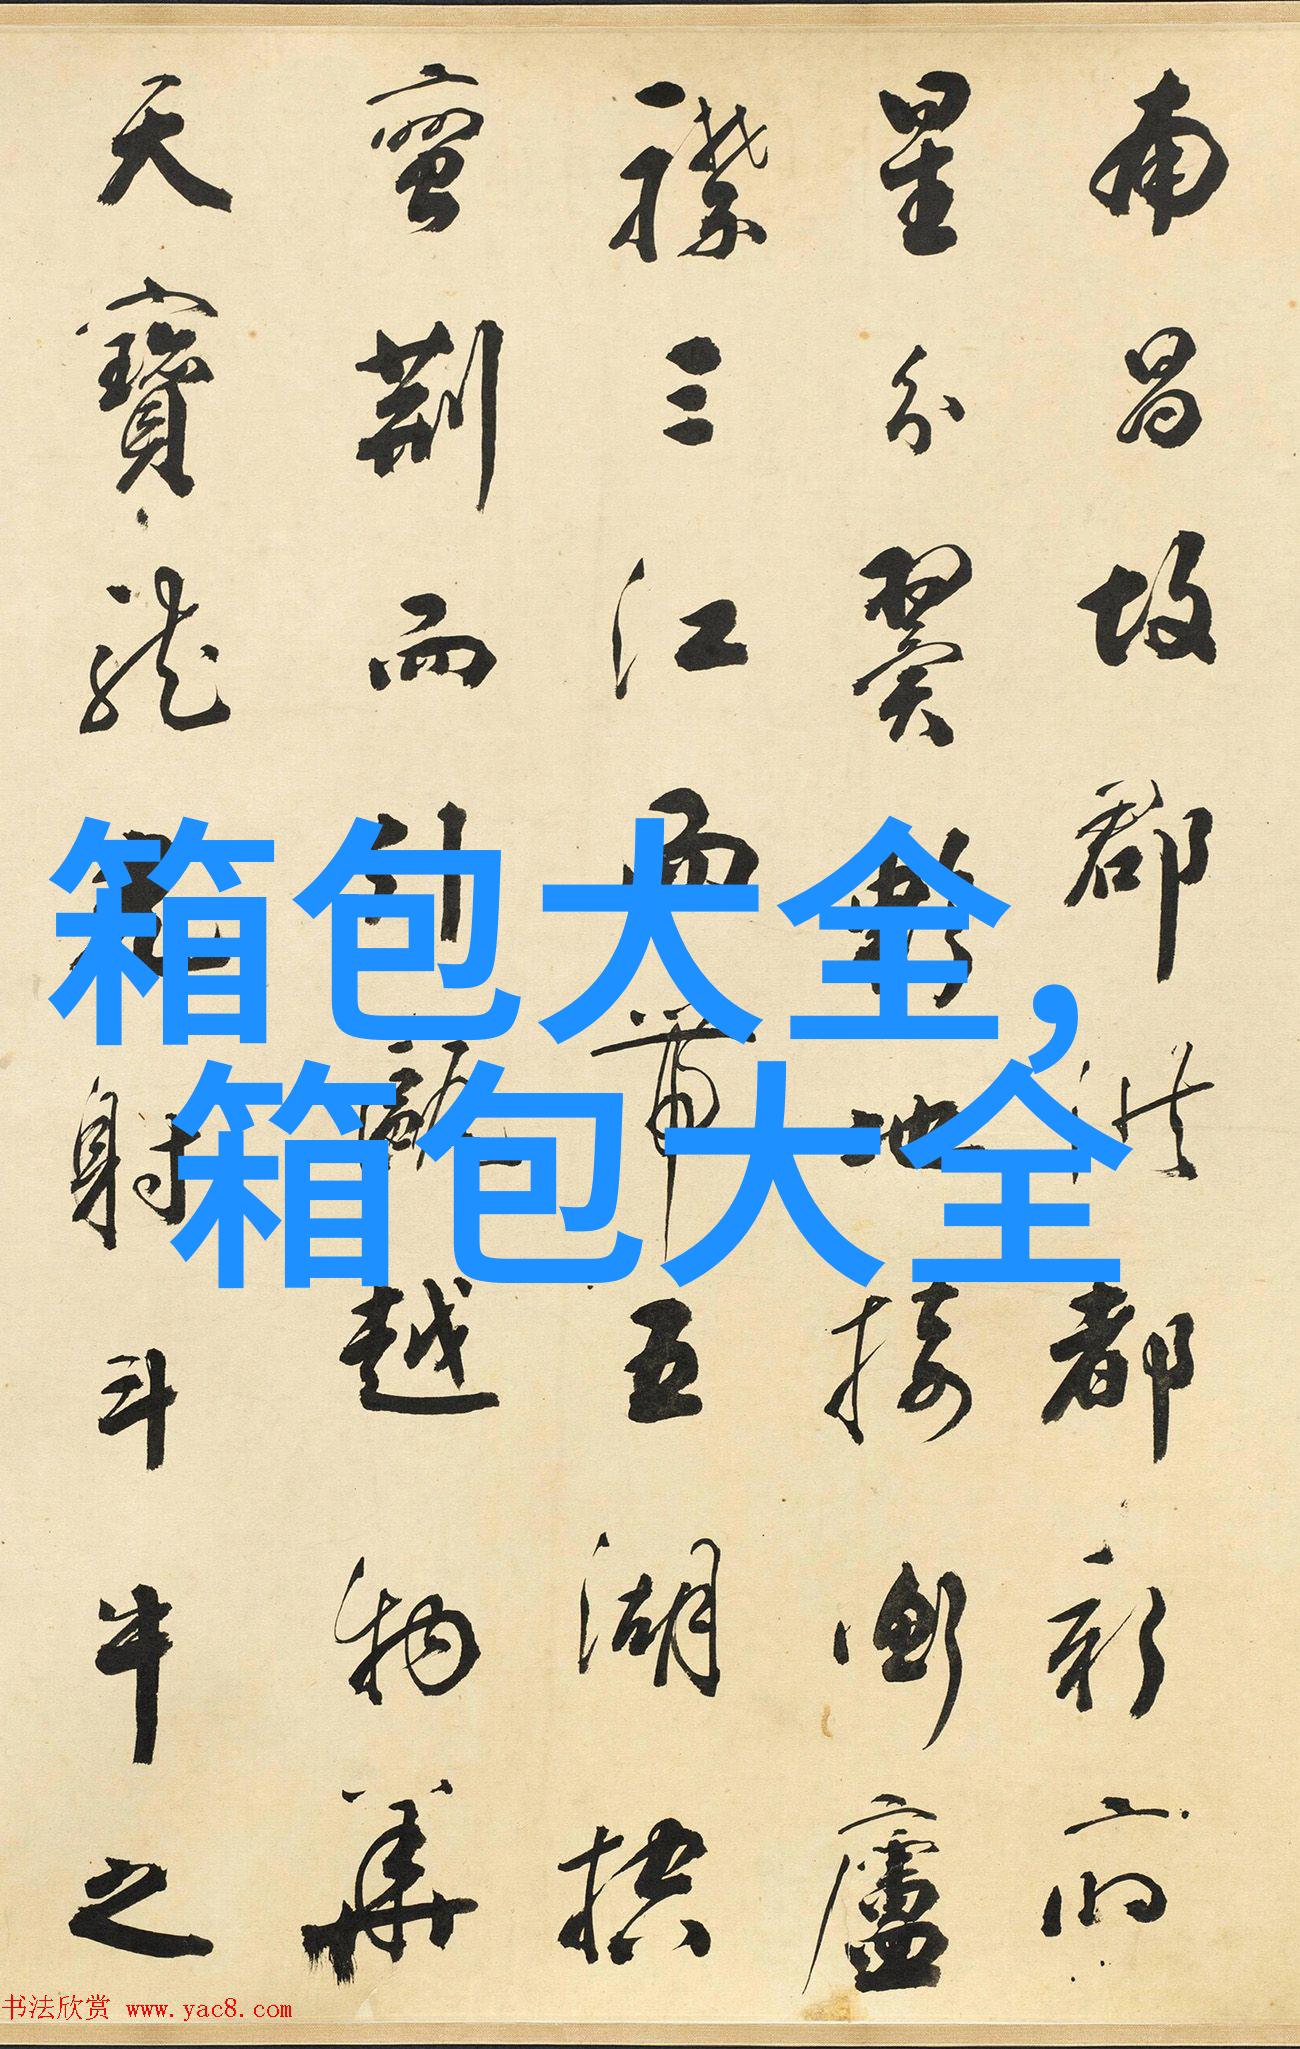 南昌故郡洪都新府
星分翼軫地接衡廬
襟三江而帶五湖控
蠻荊而引甌越物華
天寶龍光射斗牛之
箱包大全,
箱包大全
书法欣赏 www.yac8.com